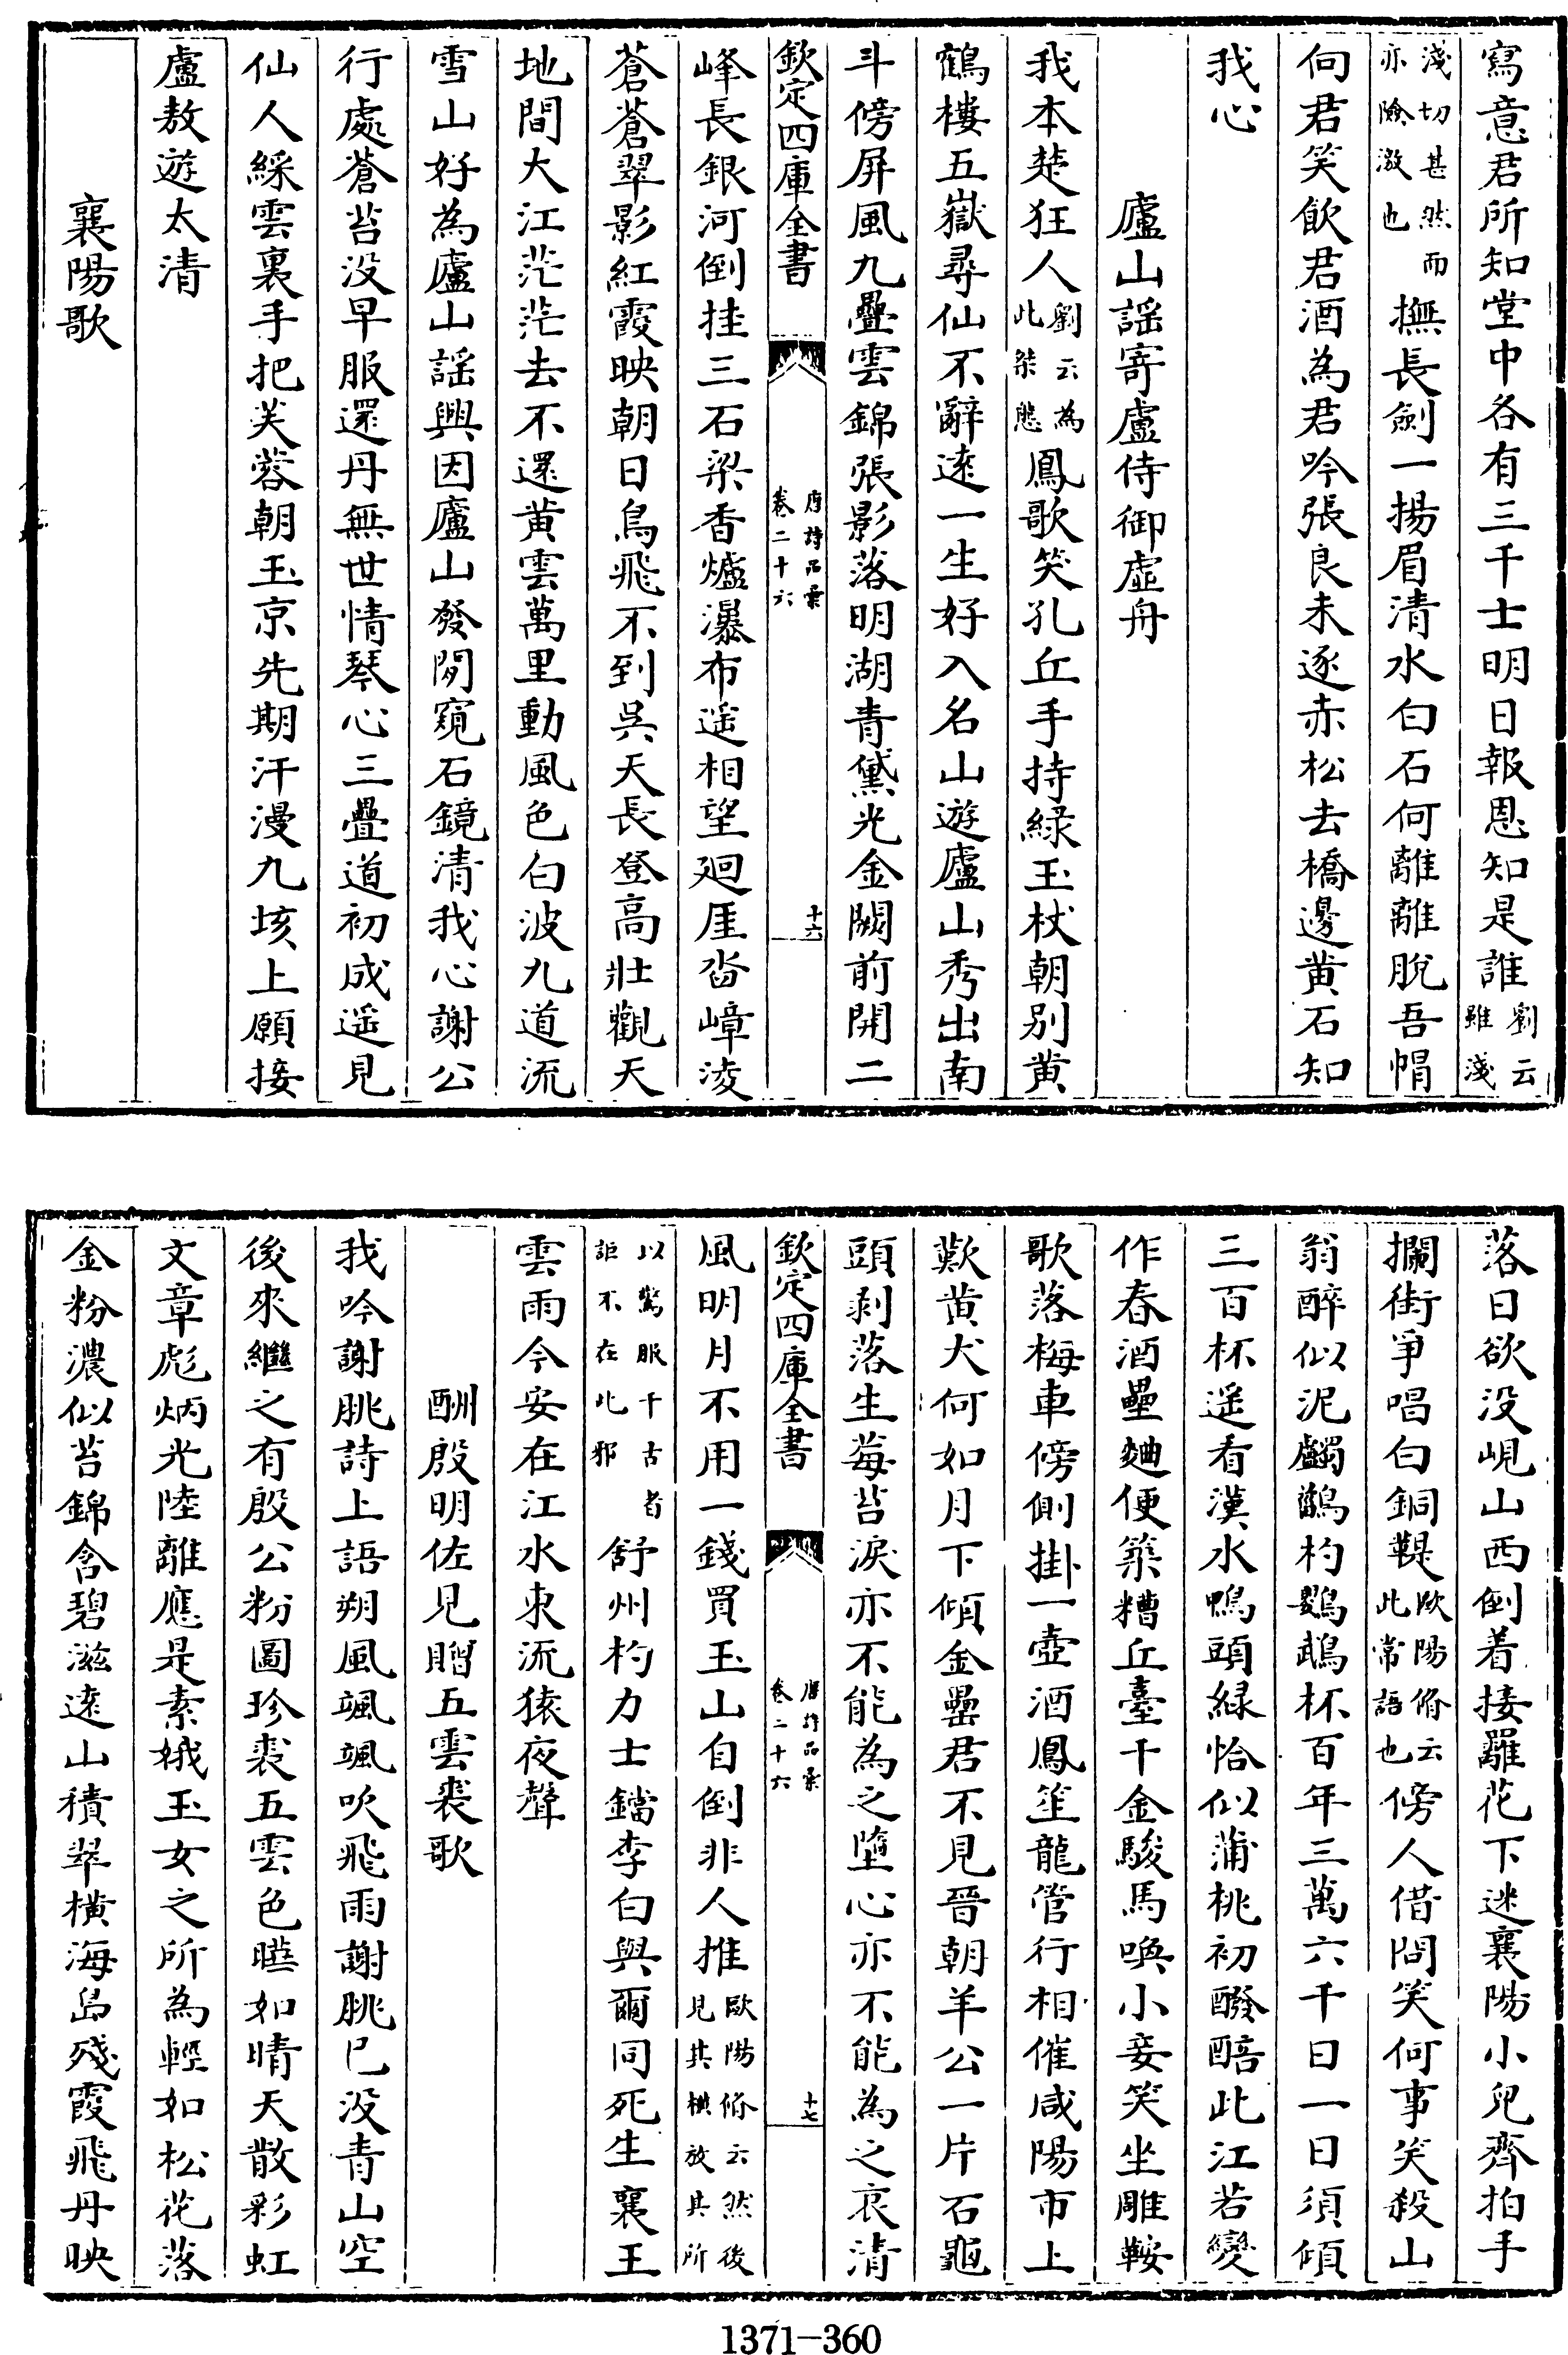 寫意君所知堂中各有三千士明日報恩知是誰劉云雖淺
淺切甚然而亦險激也撫長劍一揚眉清水白石何離離脫吾帽
向君笑飲君酒為君吟張良未逐赤松去橋邊黄石知
我心
廬山謡寄盧侍御虛舟
我本楚狂人劉云為此桀態鳳歌笑孔丘手持緑玉杖朝別黄
鶴樓五嶽尋仙不辭逺一生好入名山遊廬山秀出南
斗傍屏風九疊雲錦張影落明湖青黛光金闕前開二
欽定四庫全書 唐詩品彙 卷二十六 十六
峰長銀河倒挂三石梁香爐瀑布遥相望廻厓沓嶂凌
蒼蒼翠影紅霞映朝日鳥飛不到呉天長登高壯觀天
地間大江茫茫去不還黄雲萬里動風色白波九道流
雪山好為廬山謡興因廬山發閒窺石鏡清我心謝公
行處蒼苔没早服還丹無世情琴心三疊道初成遥見
仙人綵雲裏手把芙蓉朝玉京先期汗漫九垓上願接
盧敖遊太清
襄陽歌
落日欲没峴山西倒着接䍦花下迷襄陽小兒齊拍手
攔街爭唱白銅鞮歐陽脩云此常語也傍人借問笑何事笑殺山
翁醉似泥鸕鷀杓鸚鵡杯百年三萬六千日一日須傾
三百杯遥看漢水鴨頭緑恰似蒲桃初醱醅此江若變
作春酒壘麯便築糟丘臺千金駿馬喚小妾笑坐雕鞍
歌落梅車傍側掛一壺酒鳳笙龍管行相催咸陽市上
歎黄犬何如月下傾金罍君不見晉朝羊公一片石龜
頭剥落生莓苔淚亦不能為之墮心亦不能為之哀清
欽定四庫全書 唐詩品彙 卷二十六 十七
風明月不用一錢買玉山自倒非人推歐陽脩云然後見其横放其所
以驚服千古者詎不在此邪舒州杓力士鐺李白與爾同死生襄王
雲雨今安在江水東流猿夜聲
酬殷明佐見贈五雲裘歌
我吟謝朓詩上語朔風颯颯吹飛雨謝朓已没青山空
後來繼之有殷公粉圖珍裘五雲色曄如晴天散彩虹
文章彪炳光陸離應是素娥玉女之所為輕如松花落
金粉濃似苔錦含碧滋逺山積翠橫海島殘霞飛丹映
1371-360